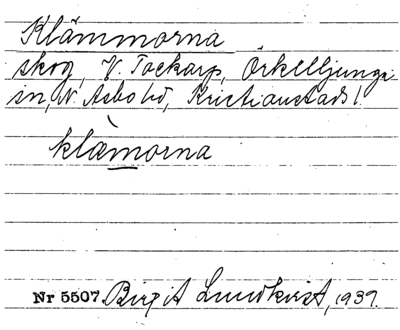 Klämmorna
skog, V. Tockarp, Örkelljunga
sn, N. Åsbo hd, Kristianstads l.
klæmorna
Nr 5507 Birgit Lundkvist, 1939.